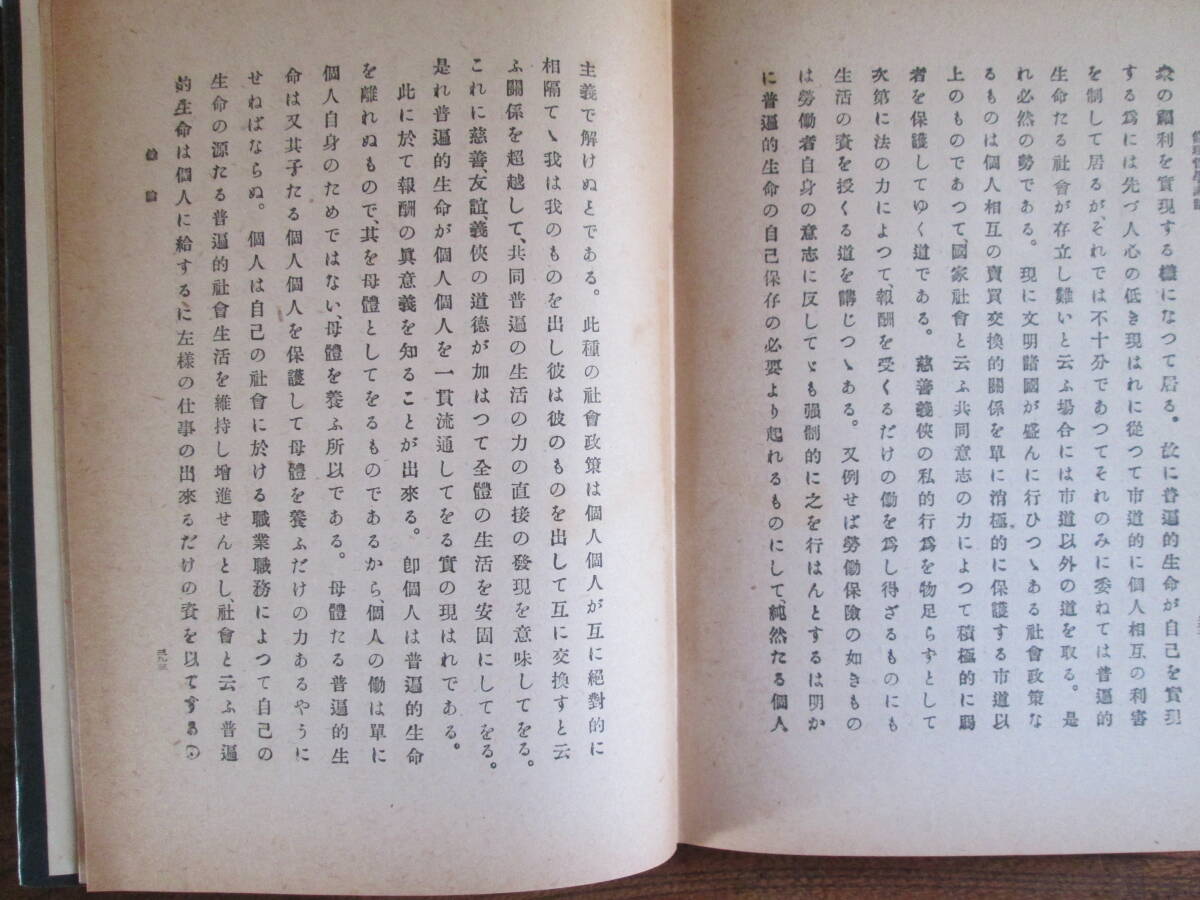 衆の福利を實現する樣になつて居る。故に普遍的生命が自己を實現
する爲には先づ人心の低き現はれに從つて市道的に個人相互の利害
を制して居るが、それでは不十分であつてそれのみに委ねては普遍的
生命たる社會が存立し難いと云ふ場合には市道以外の道を取る。是
れ必然の勢である。現に文明諸國が盛んに行ひつゝある社會政策な
るものは個人相互の賣買交換的關係を單に消極的に保護する市道以
上のものであつて、國家社會と云ふ共同意志の力によつて積極的に弱
者を保護してゆく道である。慈善義俠の私的行爲を物足らずとして
次第に法の力によつて、報酬を受くるだけの働を爲し得ざるものにも
生活の資を授くる道を講じつゝある。又例せば勞働保險の如きもの
は勞働者自身の意志に反してゞも强制的に之を行はんとするは明か
に普遍的生命の自己保存の必要より起れるものにして、純然たる個人
主義で解けぬとである。此種の社會政策は個人個人が互に絕對的に
相隔てゝ我は我のものを出し彼は彼のものを出して互に交換すと云
ふ關係を超越して、共同普遍の生活の力の直接の發現を意味してをる。
これに慈善、友誼、義俠の道德が加はつて全體の生活を安固にしてをる。
是れ普遍的生命が個人個人を一貫流通してをる實の現はれである。
此に於て報酬の眞意義を知ることが出來る。卽個人は普遍的生命
を離れぬもので、其を母體としてをるものであるから、個人の働は單に
個人自身のためではない、母體を養ふ所以である。母體たる普遍的生
命は又其子たる個人個人を保護して母體を養ふだけの力あるやうに
せねばならぬ。個人は自己の社會に於ける職業職務によつて自己の
生命の源たる普遍的社會生活を維持し增進せんとし、社會と云ふ普遍
的生命は個人に給するに左樣の仕事の出來るだけの資を以てするの
論